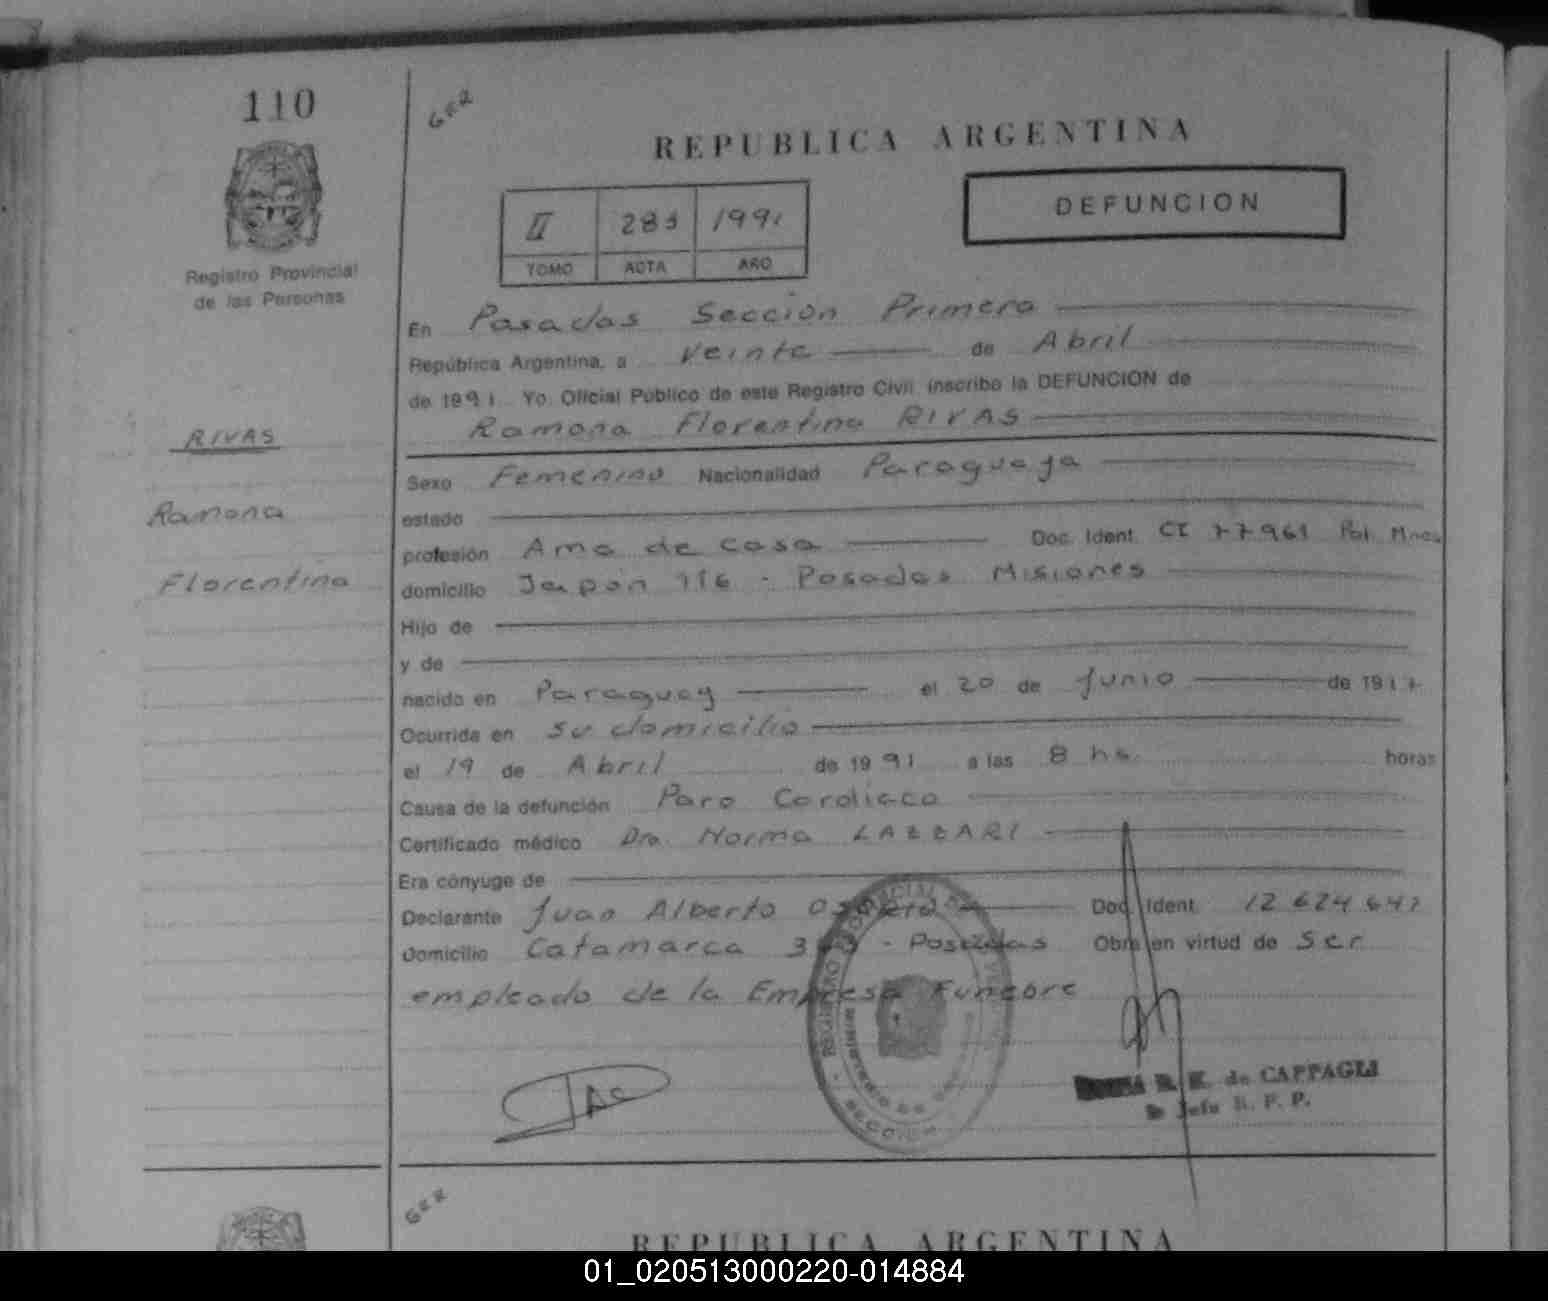 110
GRR
REPUBLICA ARGENTINA
DEFUNCION
II 283 1991
TOMO ACTA AÑO
Registro Provincial
de las Personas
En Posadas Sección Primera
República Argentina, a Veinte de Abril
de 1991 Yo Oficial Público de este Registro Civil inscribo la DEFUNCION de
Ramona Florentina RIVAS
RIVAS
Ramona
Florentina
Sexo Femenino Nacionalidad Paraguaya
estado
profesión Ama de casa Doc. Ident. CI 77961 Pol. Mnes
domicilio Japón 116 - Posadas Misiones
Hijo de
y de
nacido en Paraguay el 20 de Junio de 1917
Ocurrida en su domicilio
el 19 de Abril de 1991 a las 8 hs. horas
Causa de la defunción Paro Cardíaco
Certificado médico Dra. Norma LAZZARI
Era cónyuge de
Declarante Juan Alberto Doc. Ident. 12 624 647
domicilio Catamarca - Posadas Obra en virtud de Ser
empleado de la Empresa Funebre
REGISTRO PROVINCIAL DE
SECCION
de CAPPAGLI
Jefe R. P. P.
GRR
REPUBLICA ARGENTINA
01_020513000220-014884